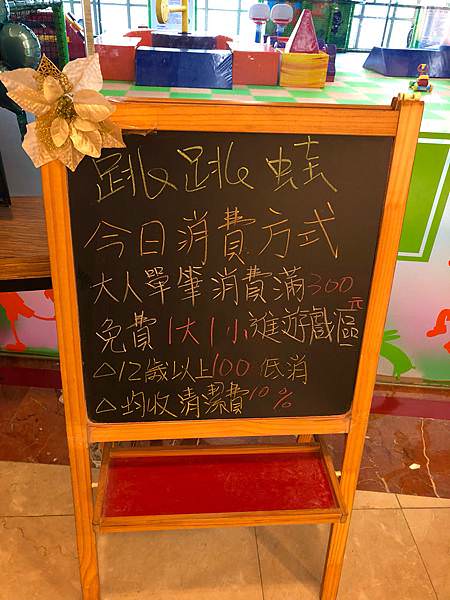 跳跳蛙
今日消費方式
大人單筆消費滿300元
免費1大1小進遊戲區
△12歲以上100低消
△均收清潔費10%